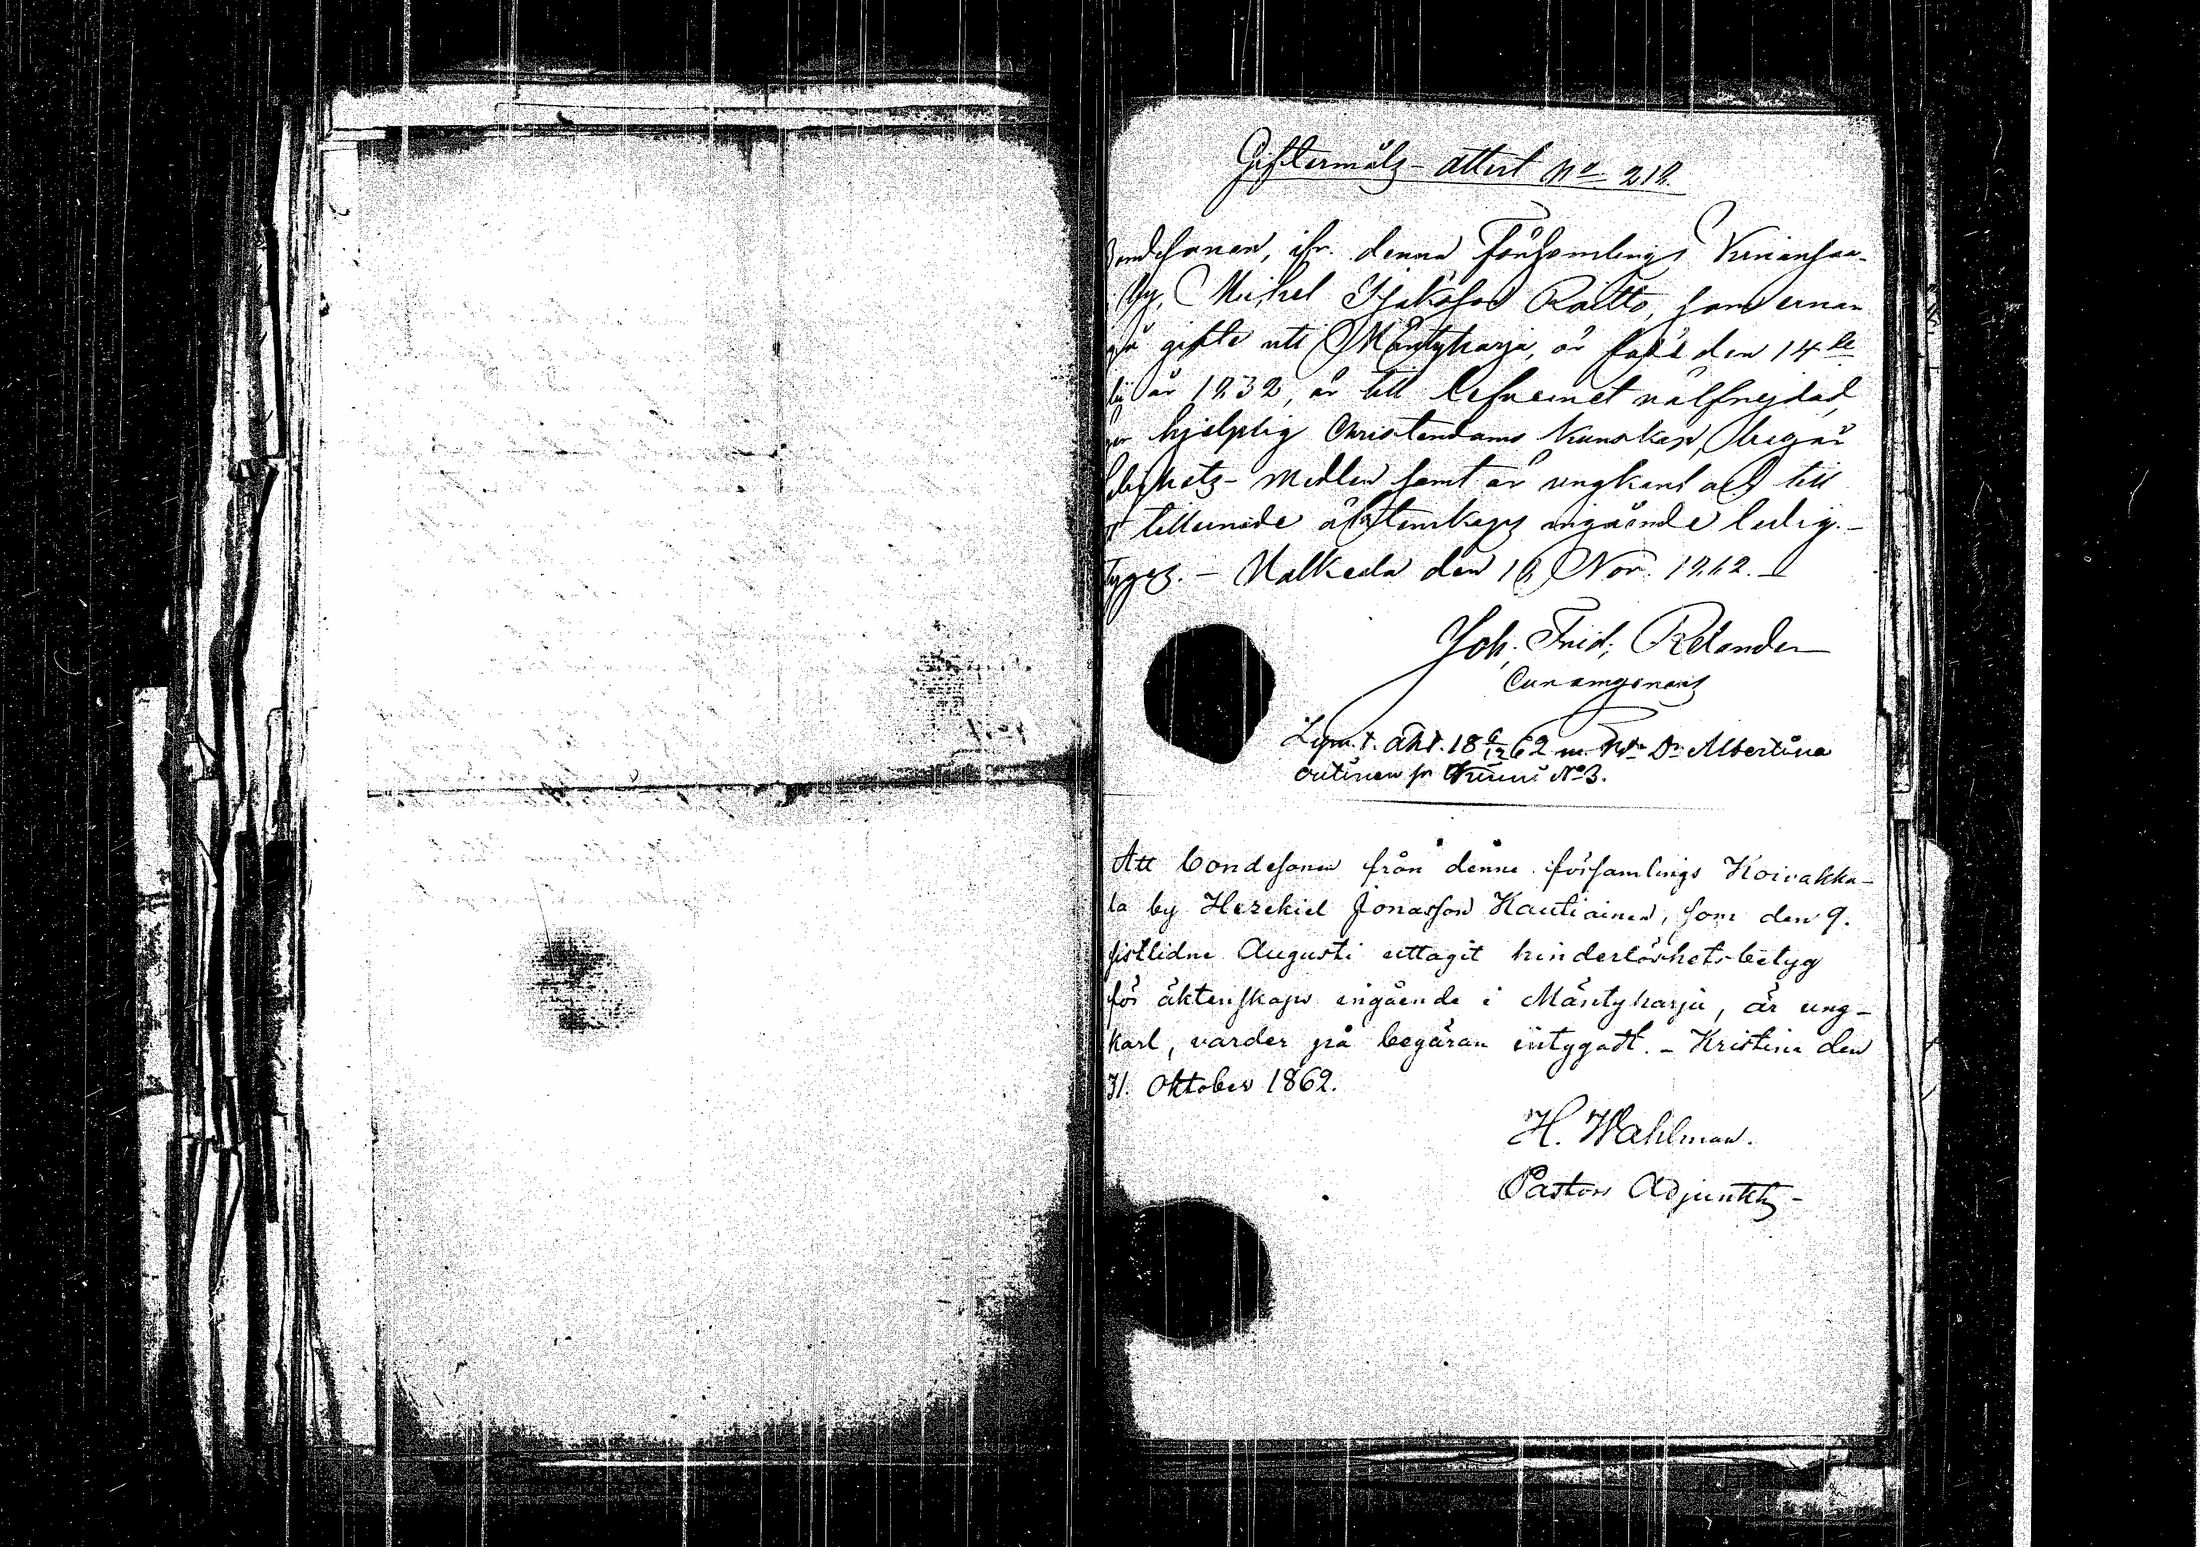 Giftermåls-attest No 212.
Bondesonen, ifr. denna Församlings
by, Mikel Raitto, som ernar
gå gifte uti Mäntyharju, är född den 14de
år 1832, är till lefvernet välfrejdad,
hjelplig Christendoms kunskap, begår
Salighets-medlen samt är ungkarl och till
tillernade äktenskaps ingående ledig.-
tygas. - Walkeala den 18 Nov. 1862. -
Joh. Frid. Relander
Lyst. 1. äkt. 18 6/12 62 m. Bde Dr Albertina
fr No 3.
Att bondesonen från denne församlings Koivakka-
la by Hezekiel Jonasson Kautiainen, som den 9.
sistlidne Augusti uttagit hinderlöshets-betyg
för äktenskaps ingående i Mäntyharju, är ung-
karl, varder på begäran intygadt. - Kristina den
31. Oktober 1862.
H. Wahlman.
Pastors Adjunkt -